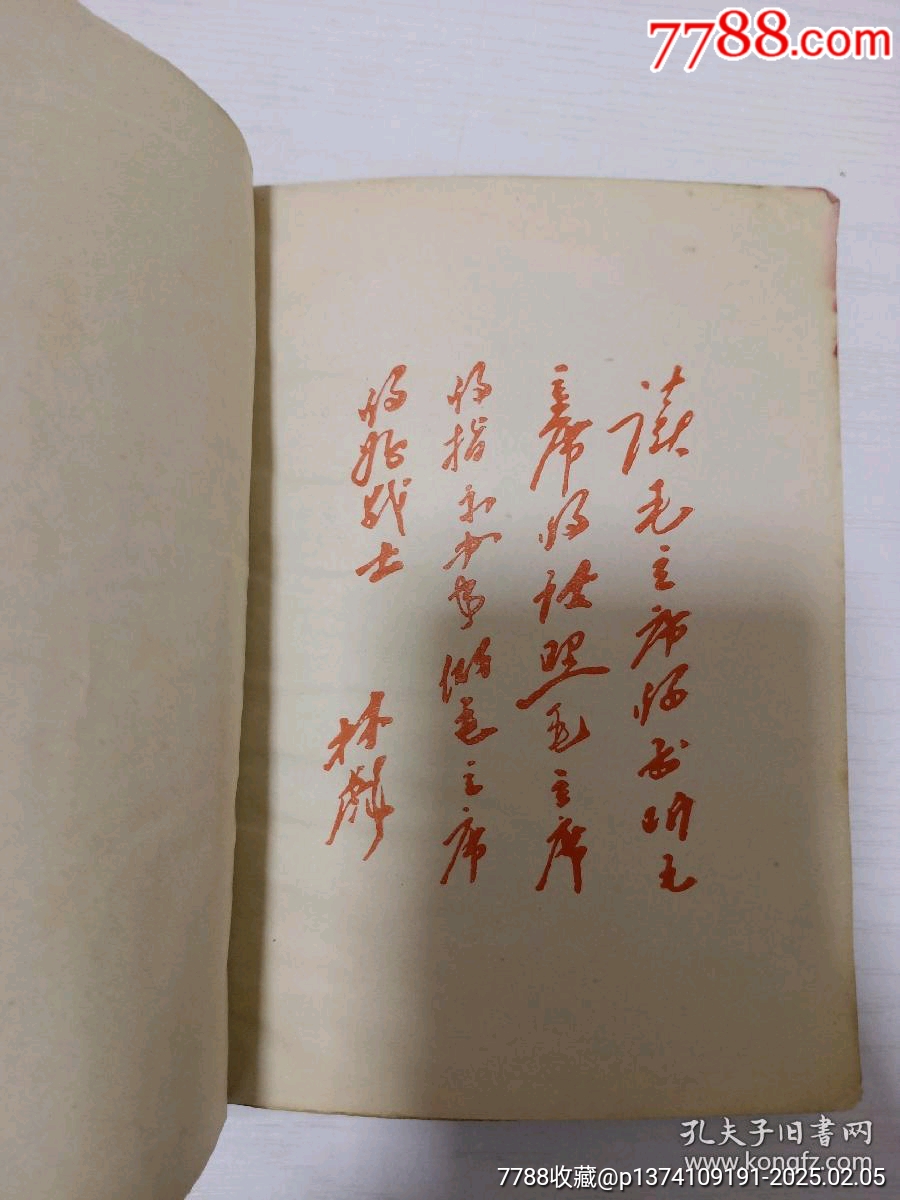 7788.com
读毛主席的书听毛
主席的话照毛主席
的指示办事做毛主席
的好战士
林彪
孔夫子旧书网
www.kongfz.com
7788收藏@p1374109191-2025.02.05